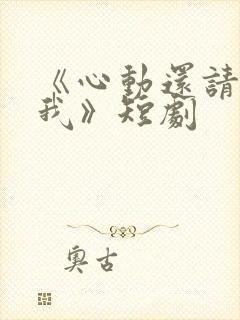 《心動還請
我》短劇
奧古